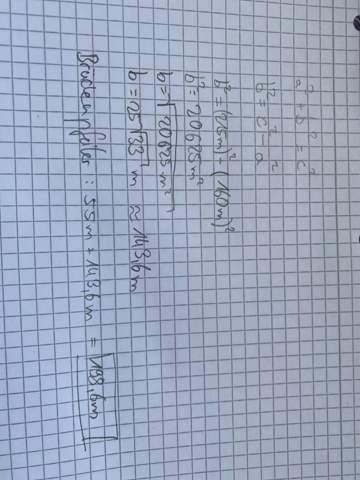 a² + b² = c²
b² = c² - a²
b² = (215m)² - (160m)²
b² = 20625m²
b = √20625m²
b = 25√33 m ≈ 143,6m
Brückenpfeiler : 55m + 143,6m = 198,6m